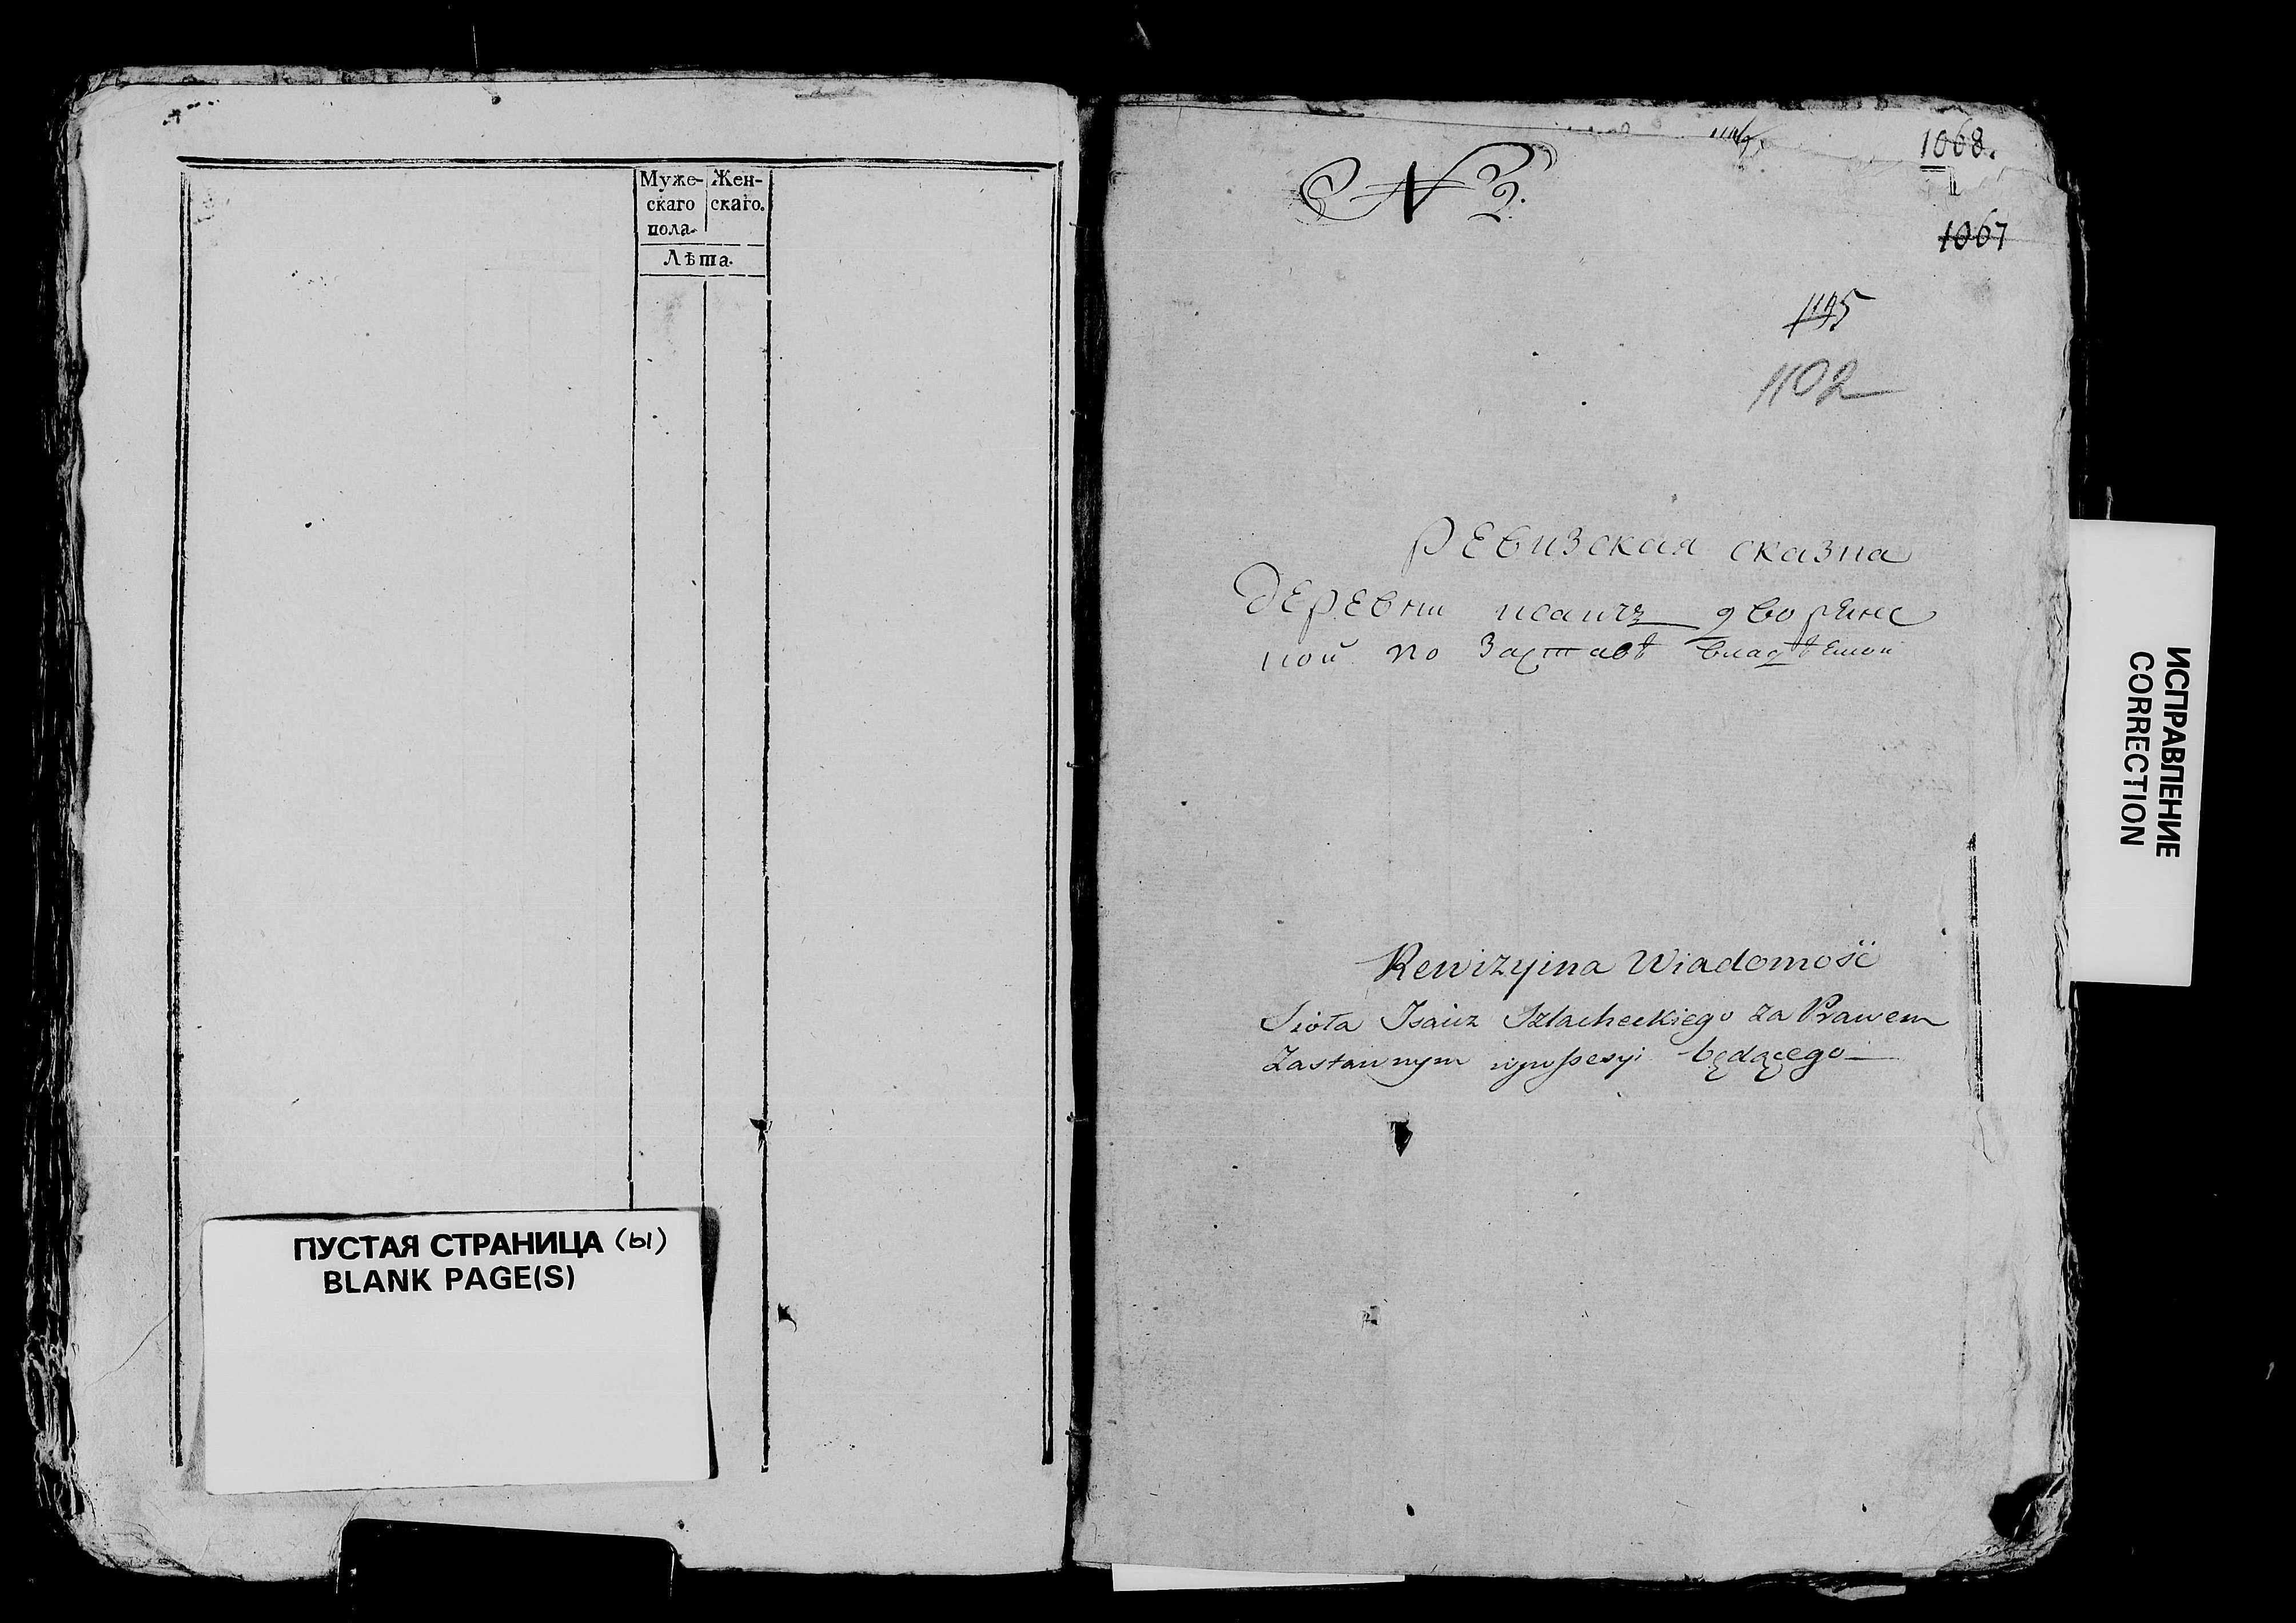 Муже-
скаго
пола.
Жен-
скаго.
Лѣта.
ПУСТАЯ СТРАНИЦА (ы)
BLANK PAGE(S)
N 3.
1068.
1067
1145
1102
Ревизская сказка
деревни исаичъ дворянс
кой по заставѣ владѣемой
Rewizyina Wiadomość
Sioła Isaicz Szlacheckiego za Prawem
Zastawnym będącego
ИСПРАВЛЕНИЕ
CORRECTION